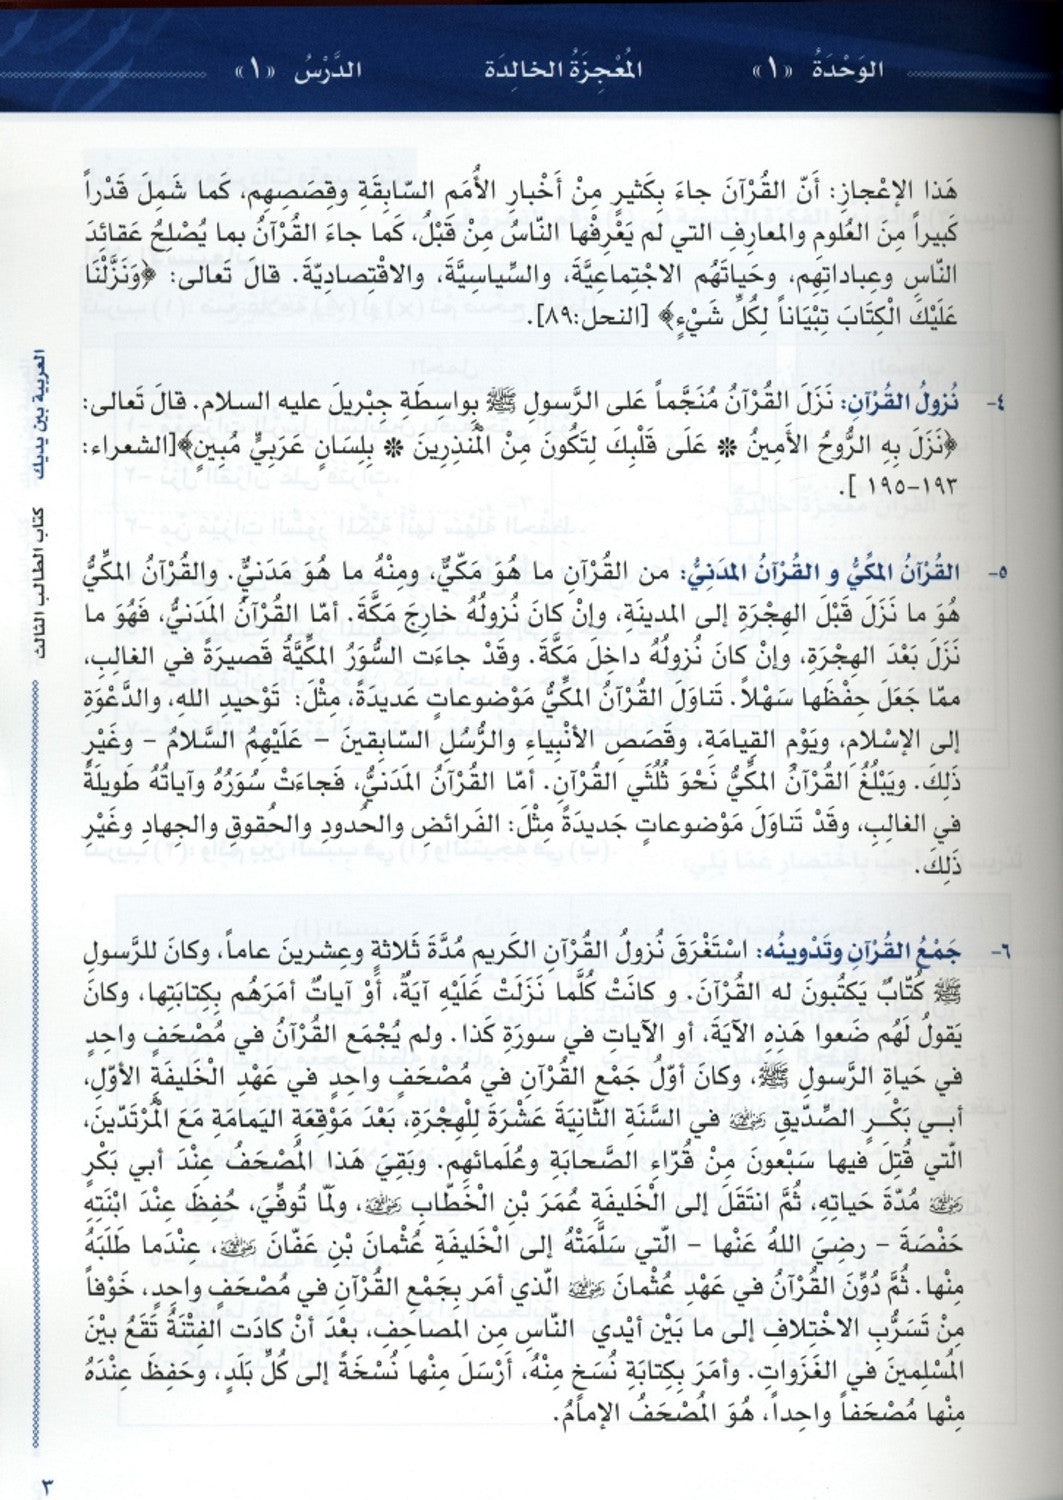 الوَحْدَةُ «١» المُعْجِزَةُ الخالِدَة الدَّرْسُ «١»
هَذا الإعْجازِ: أَنّ القُرْآنَ جاءَ بِكَثيرٍ مِنْ أَخْبارِ الأُمَم السّابِقَةِ وقِصَصِهِم، كَما شَمِلَ قَدْراً
كَبيراً مِنَ العُلومِ والمعارِفِ التي لم يَعْرِفْها النّاسُ مِنْ قَبْلُ، كَما جاءَ القُرْآنُ بما يُصْلِحُ عَقائِدَ
النّاسِ وعِباداتِهِم، وحَياتَهُم الاجْتِماعِيَّةَ، والسِّياسيَّةَ، والاقْتِصاديّةَ. قالَ تَعالى: ﴿وَنَزَّلْنَا
عَلَيْكَ الْكِتَابَ تِبْيَاناً لِكُلِّ شَيْءٍ﴾ [النحل:٨٩].
٤- نُزولُ القُرْآنِ: نَزَلَ القُرْآنُ مُنَجَّماً عَلى الرَّسولِ ﷺ بِواسِطَةِ جِبْريلَ عليه السلام. قالَ تَعالى:
﴿نَزَلَ بِهِ الرُّوحُ الأَمِينُ * عَلَى قَلْبِكَ لِتَكُونَ مِنْ الْمُنذِرِينَ * بِلِسَانٍ عَرَبِيٍّ مُبِينٍ﴾[الشعراء:
١٩٣-١٩٥ ].
٥- القُرْآنُ المكِّيُّ و القُرْآنُ المدَنِيُّ: من القُرْآنِ ما هُوَ مَكِّيٌّ، ومِنْهُ ما هُوَ مَدَنيٌّ. والقُرْآنُ المكِّيُّ
هُوَ ما نَزَلَ قَبْلَ الهِجْرَةِ إلى المدينَةِ، وإنْ كانَ نُزولُهُ خارِجَ مَكَّةَ. أمّا القُرْآنُ المَدَنيُّ، فَهُوَ ما
نَزَلَ بَعْدَ الهِجْرَةِ، وإنْ كانَ نُزولُهُ داخِلَ مَكَّةَ. وقَدْ جاءَت السُّوَرُ المكِّيَّةُ قَصيرَةً في الغالِبِ،
ممّا جَعَلَ حِفْظَها سَهْلاً. تَناوَلَ القُرْآنُ المكِّيُّ مَوْضوعاتٍ عَديدَةً، مِثْلَ: تَوْحيدِ اللهِ، والدَّعْوَةِ
إلى الإسْلامِ، ويَوْمِ القِيامَةِ، وقَصَصِ الأنْبِياءِ والرُّسُلِ السّابِقينَ – عَلَيْهِمُ السَّلامُ – وغَيْرِ
ذَلِكَ. ويَبْلُغُ القُرْآنُ المكِّيُّ نَحْوَ ثُلُثَي القُرْآنِ. أمّا القُرْآنُ المَدَنيُّ، فَجاءَتْ سُوَرُهُ وآياتُهُ طَويلَةً
في الغالِبِ، وقَدْ تَناوَلَ مَوْضوعاتٍ جَديدَةً مِثْلَ: الفَرائضِ والحُدودِ والحُقوقِ والجِهادِ وغَيْرِ
ذَلِكَ.
٦- جَمْعُ القُرْآنِ وتَدْوينُه: اسْتَغْرَقَ نُزولُ القُرْآنِ الكَريم مُدَّةَ ثَلاثةٍ وعِشرينَ عاماً، وكانَ للرَّسولِ
ﷺ كُتّابٌ يَكتُبونَ له القُرْآنَ. و كانَتْ كُلَّما نَزَلَتْ عَلَيْهِ آيَةٌ، أوْ آياتٌ أمَرَهُم بِكِتابَتِها، وكانَ
يَقولُ لَهُم ضَعوا هَذِهِ الآيَةَ، أو الآياتِ في سورَةِ كَذا. ولم يُجْمَع القُرْآنُ في مُصْحَفٍ واحِدٍ
في حَياةِ الرَّسولِ ﷺ، وكانَ أوّلُ جَمْعِ القُرْآنِ في مُصْحَفٍ واحِدٍ في عَهْدِ الْخَليفَةِ الأوّلِ،
أبـي بَكْـرٍ الصِّدّيقِ رضي الله عنه في السَّنَةِ الثّانِيَةَ عَشْرَةَ لِلْهِجْرَةِ، بَعْدَ مَوْقِعَةِ اليَمامَةِ مَعَ المُرْتَدّينَ،
الّتي قُتِلَ فيها سَبْعونَ مِنْ قُرّاءِ الصَّحابَةِ وعُلَمائهِم. وبَقِيَ هَذا المُصْحَفُ عِنْدَ أبي بَكْرٍ
رضي الله عنه مُدّةَ حَياتِهِ، ثُمَّ انتَقَلَ إلى الْخَليفَةِ عُمَرَ بْنِ الْخَطّابِ رضي الله عنه، ولَمّا تُوفِّيَ، حُفِظَ عِنْدَ ابْنَتِهِ
حَفْصَةَ – رضِيَ اللهُ عَنْها – الّتي سَلَّمَتْهُ إلى الْخَليفَةِ عُثْمانَ بْنِ عَفّانَ رضي الله عنه، عِنْدَما طَلَبَهُ
مِنْها. ثُمَّ دُوِّنَ القُرْآنُ في عَهْدِ عُثْمانَ رضي الله عنه الّذي أمَر بِجَمْعِ القُرْآنِ في مُصْحَفٍ واحِدٍ، خَوْفاً
مِنْ تَسَرُّبِ الاخْتِلافِ إلى ما بَيْن أيْدي النّاسِ مِن المصاحِفِ، بعْدَ أنْ كادَت الفِتْنَةُ تَقَعُ بيْنَ
المُسْلِمينَ في الغَزَواتِ. وأمَرَ بِكِتابَةِ نُسَخٍ مِنْهُ، أرْسَلَ مِنْها نُسْخَةً إلى كُلِّ بَلَدٍ، وحَفِظَ عِنْدَهُ
مِنْها مُصْحَفاً واحِداً، هُوَ المُصْحَفُ الإمامُ.
العربية بين يديك كتاب الطالب الثالث
٣